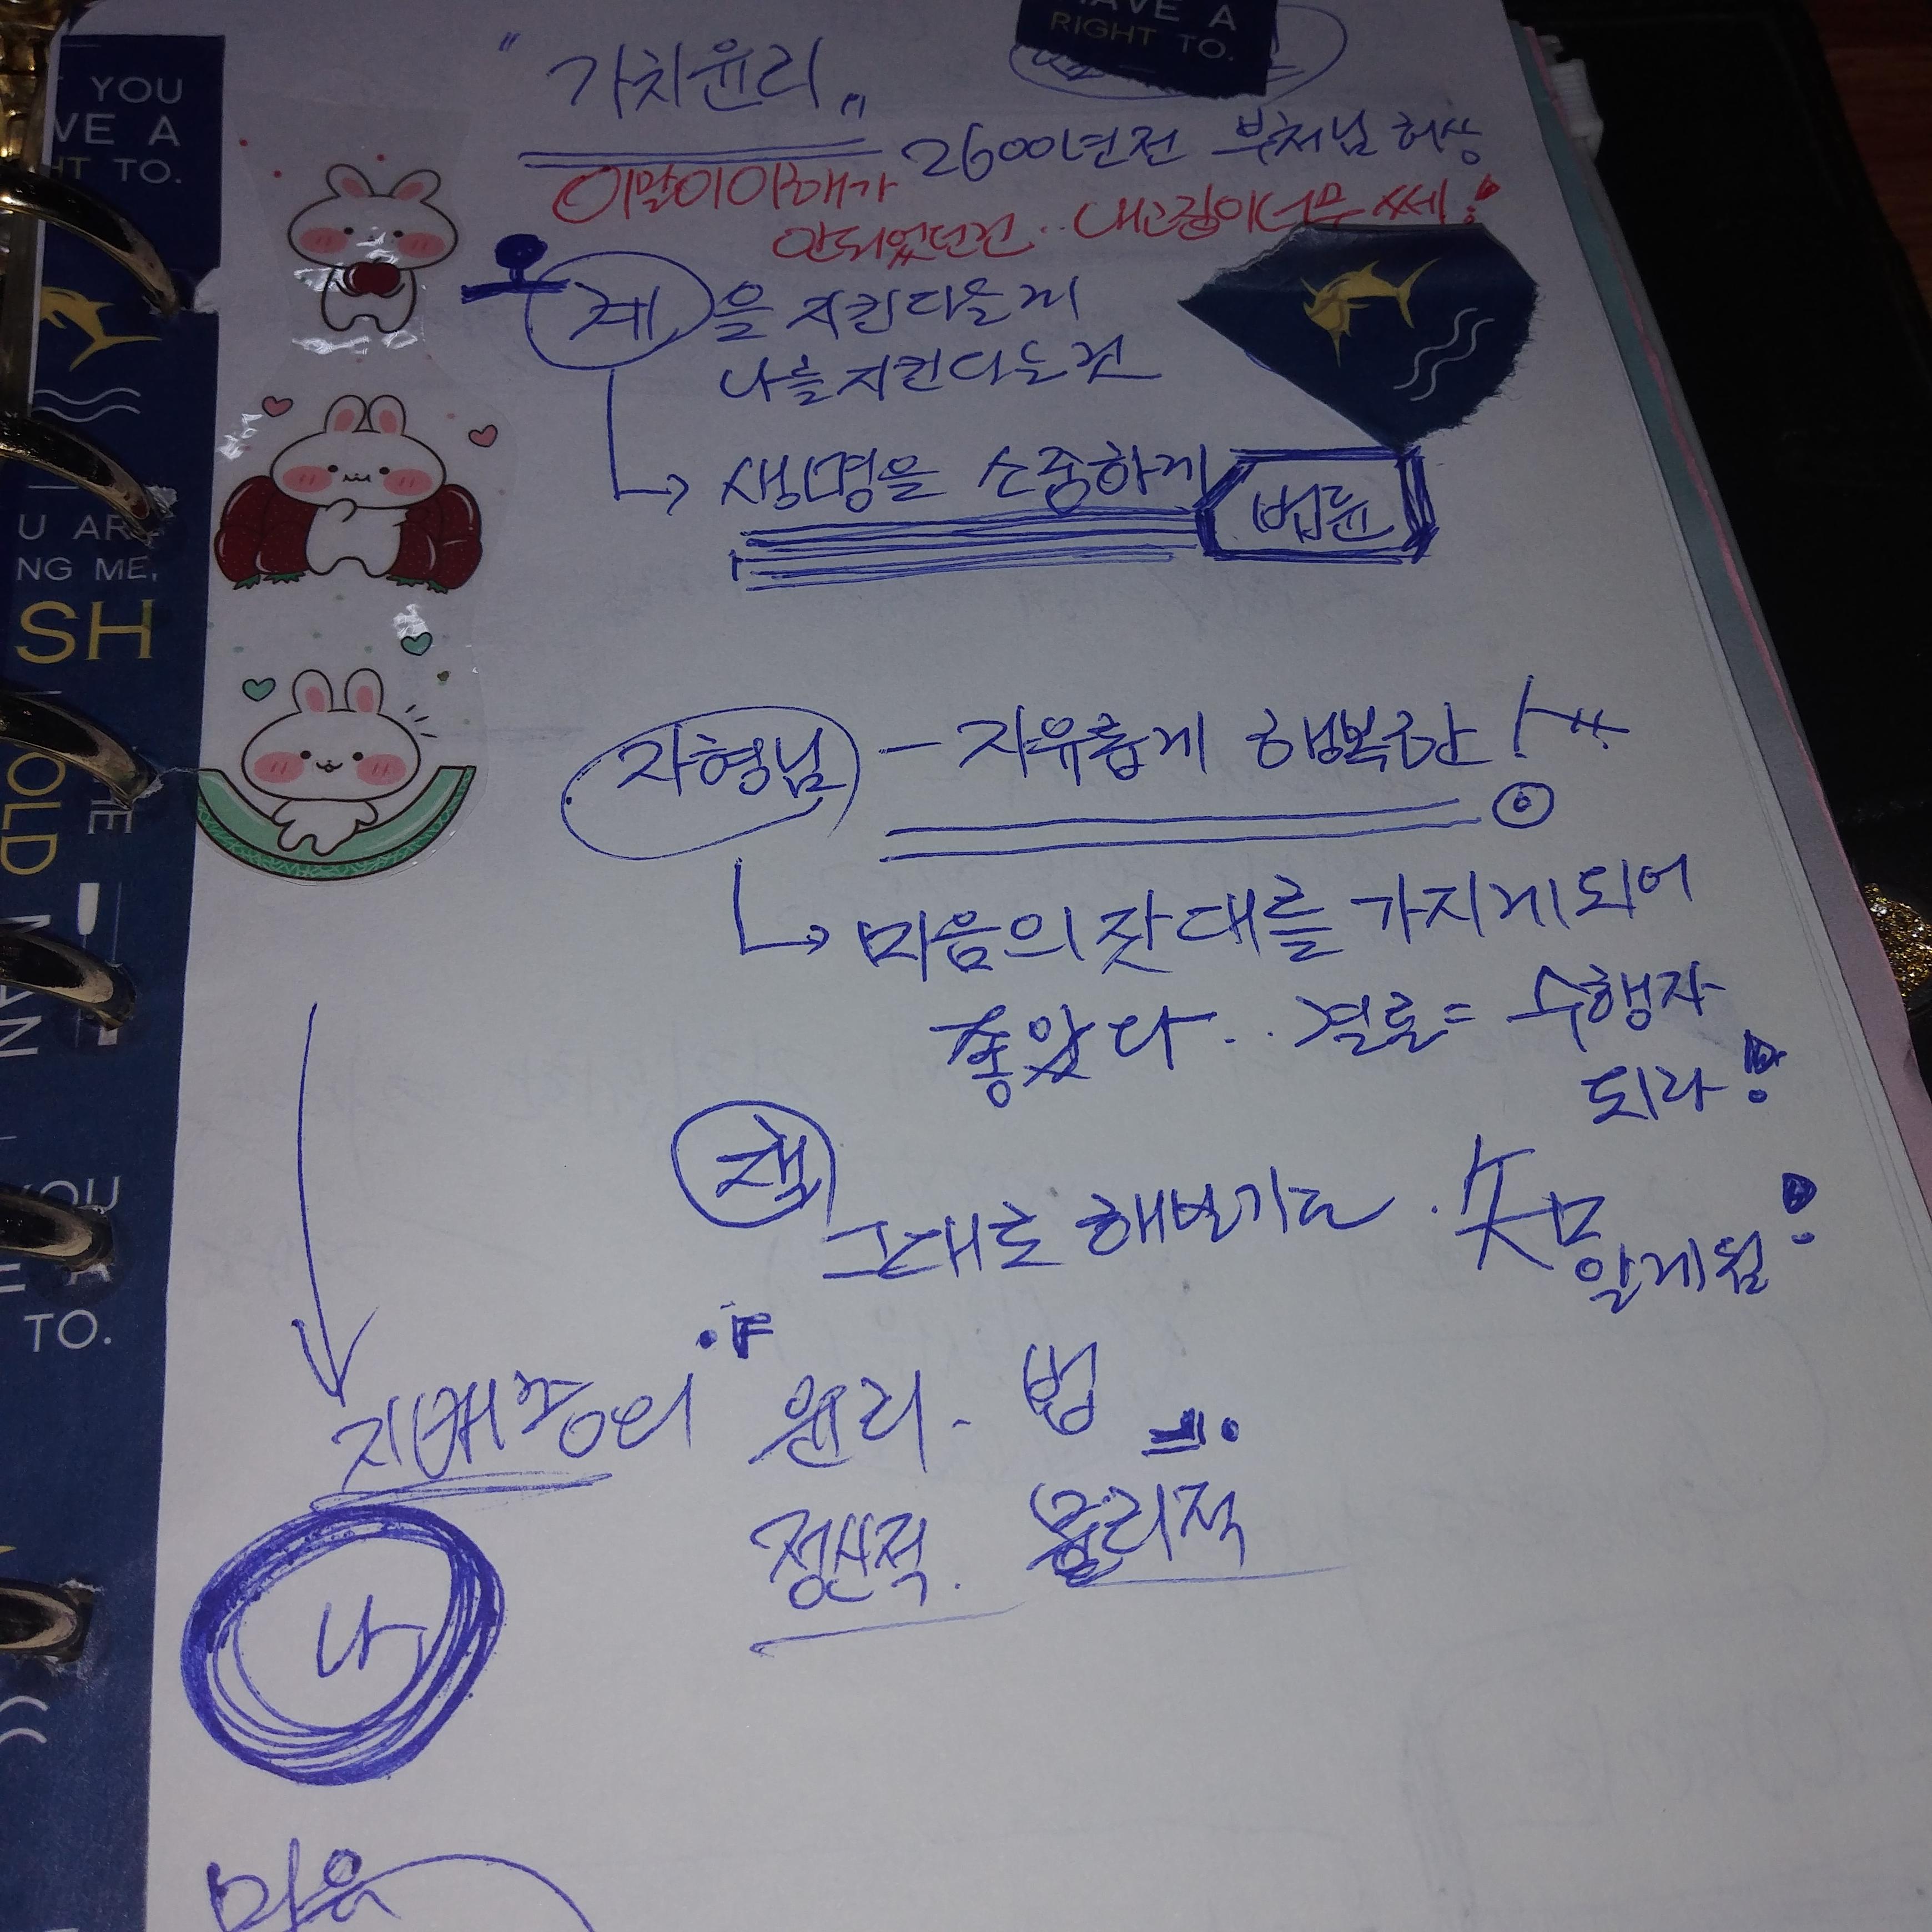 AVE A
RIGHT TO.
"가치윤리"
2600년전 부처님 허상
이말이 이해가
안되었던건.. 내고집이 너무 쎄!
계을 지킨다는게
나를 지킨다는것
생명을 소중하게 법륜
자형님 - 자유롭게 행복한!
마음의 잣대를 가지게되어
좋았다.. 결론= 수행자
되라!
책
그대로 해보기만.
알게됨!
지배층의 윤리- 법
정신적. 물리적
나
마음
YOU
VE A
HT TO.
U AR
NG ME,
SH
OLD
YOU
E A
TO.